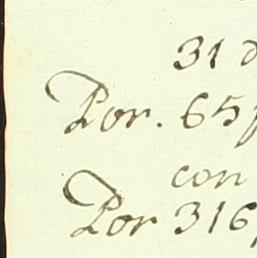 31 d
Por. 65p
con
Por 316,